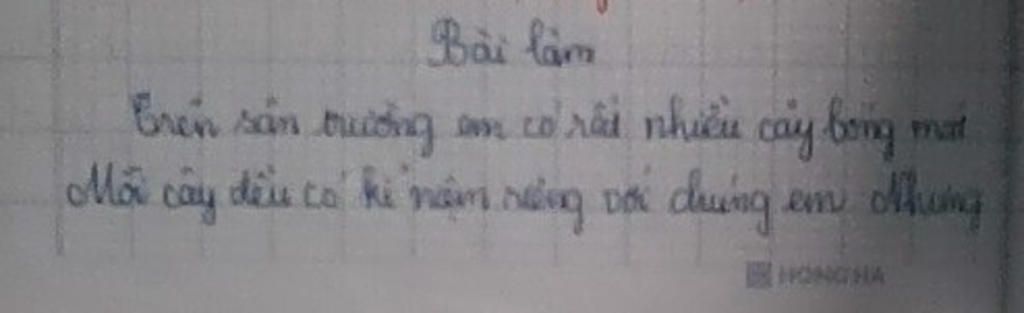 Bài làm
Trên sân trường em có rất nhiều cây bóng mát
Mỗi cây đều có kỉ niệm riêng với chúng em Nhưng
HONG HA